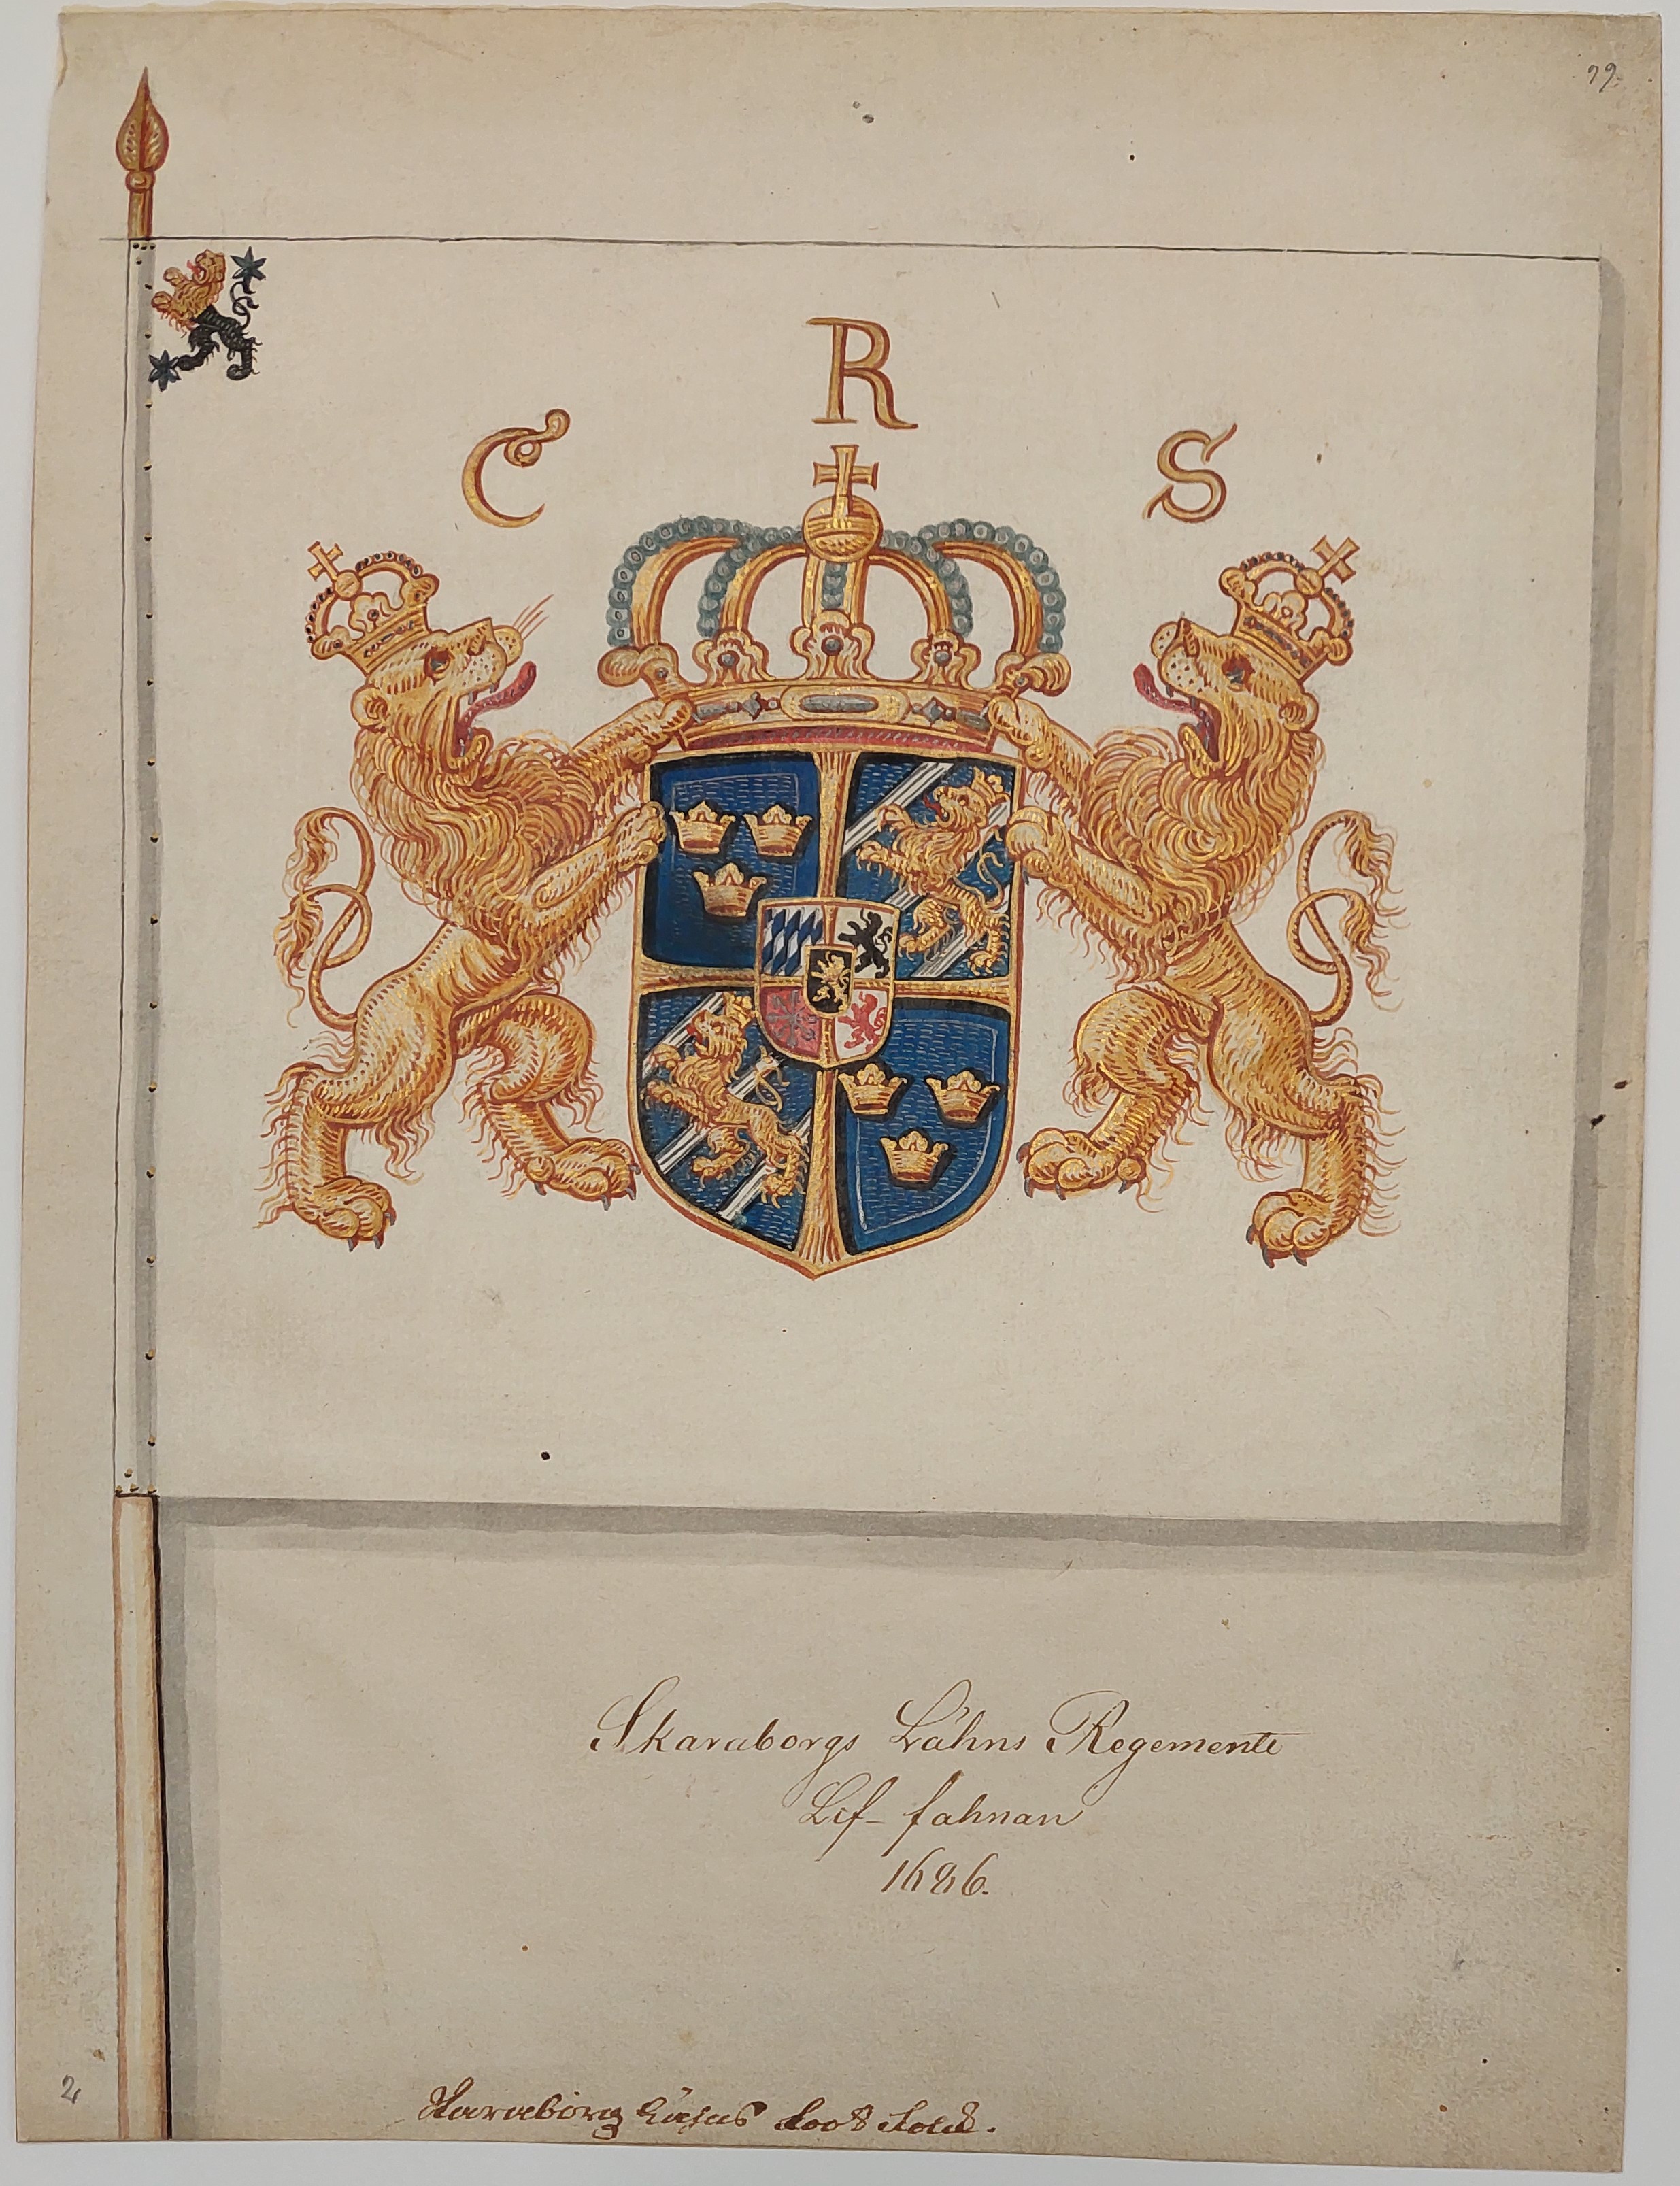 79.
R
C S
Skaraborgs Lähns Regemente
Lif-fahnan
1686.
2
Skaraborg